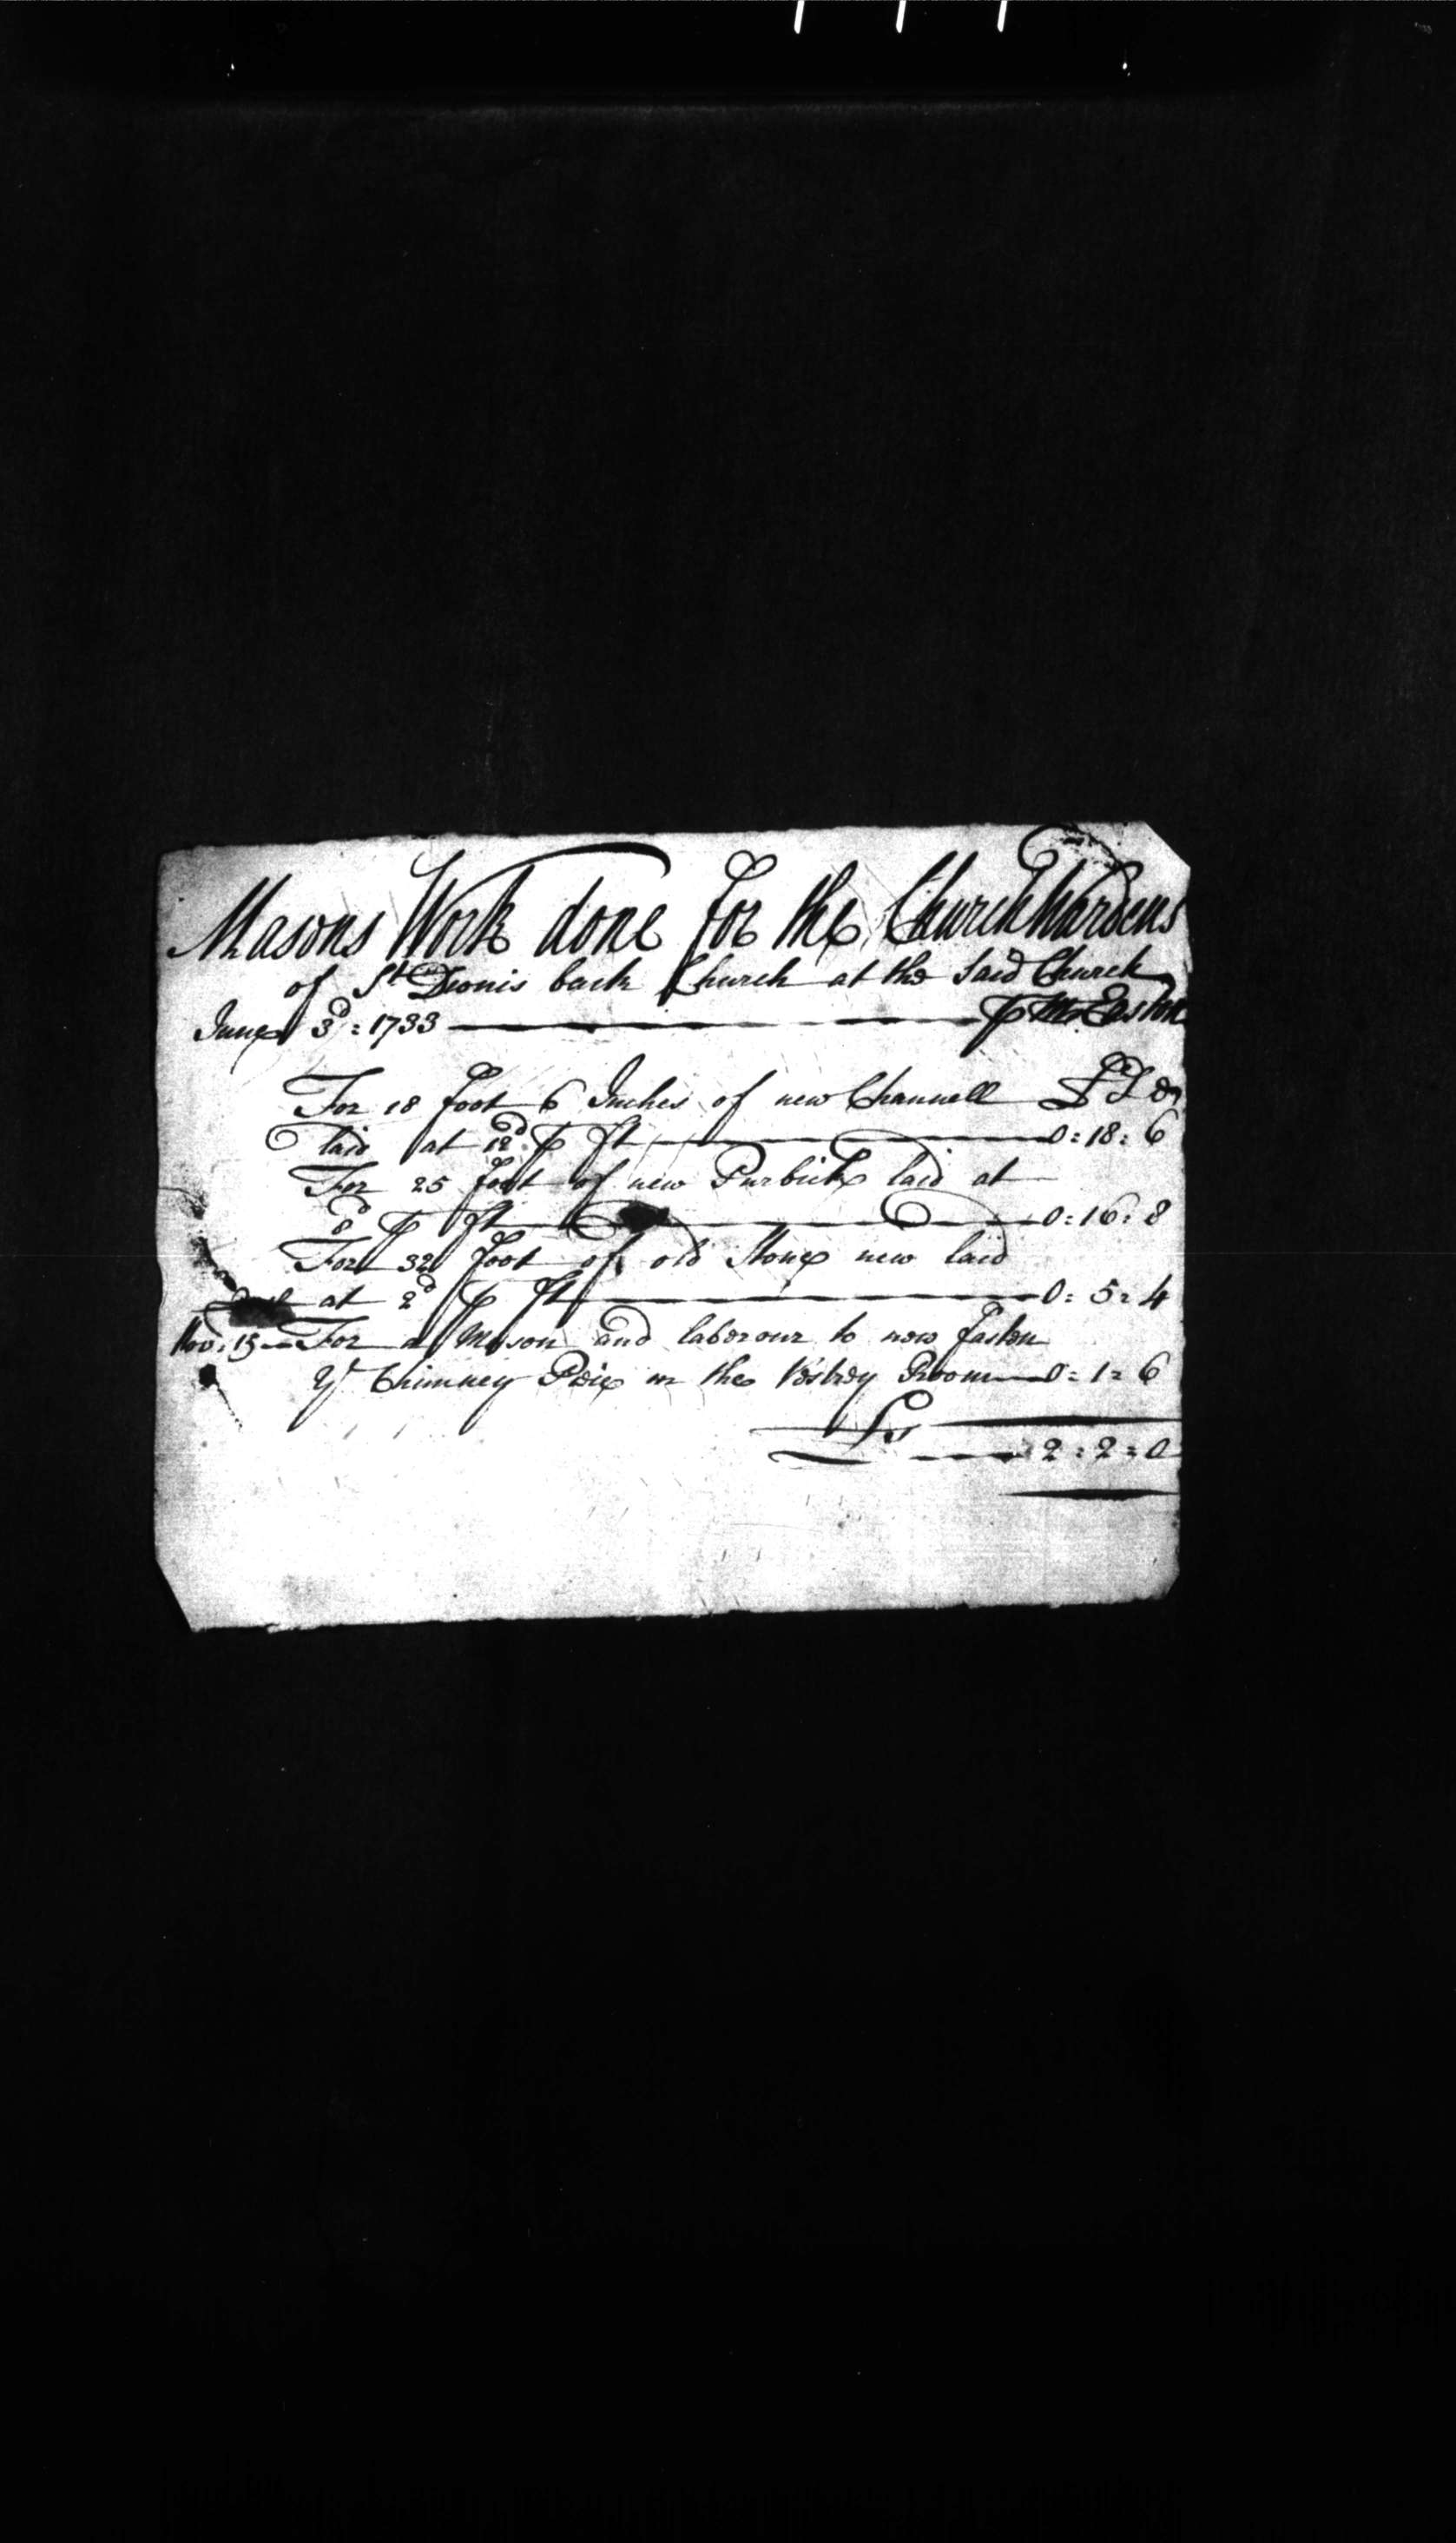 Masons Work done for the Churchwardens
of St Dionis back Church at the said Church
June 3d: 1733 ⅌ Mr. Easton
For 18 foot 6 Inches of new Channell £ S d
laid at 12d ⅌ ft 0:18:6
For 25 foot of new Purbick laid at
8d ⅌ ft 0:16:8
For 32 foot of old Stone new laid
at 2d ⅌ ft 0:5:4
Nov: 15 For a Mason and laborour to new fasten
Ye Chimney Peie in the Vestrey Room 0:1:6
2:2:0